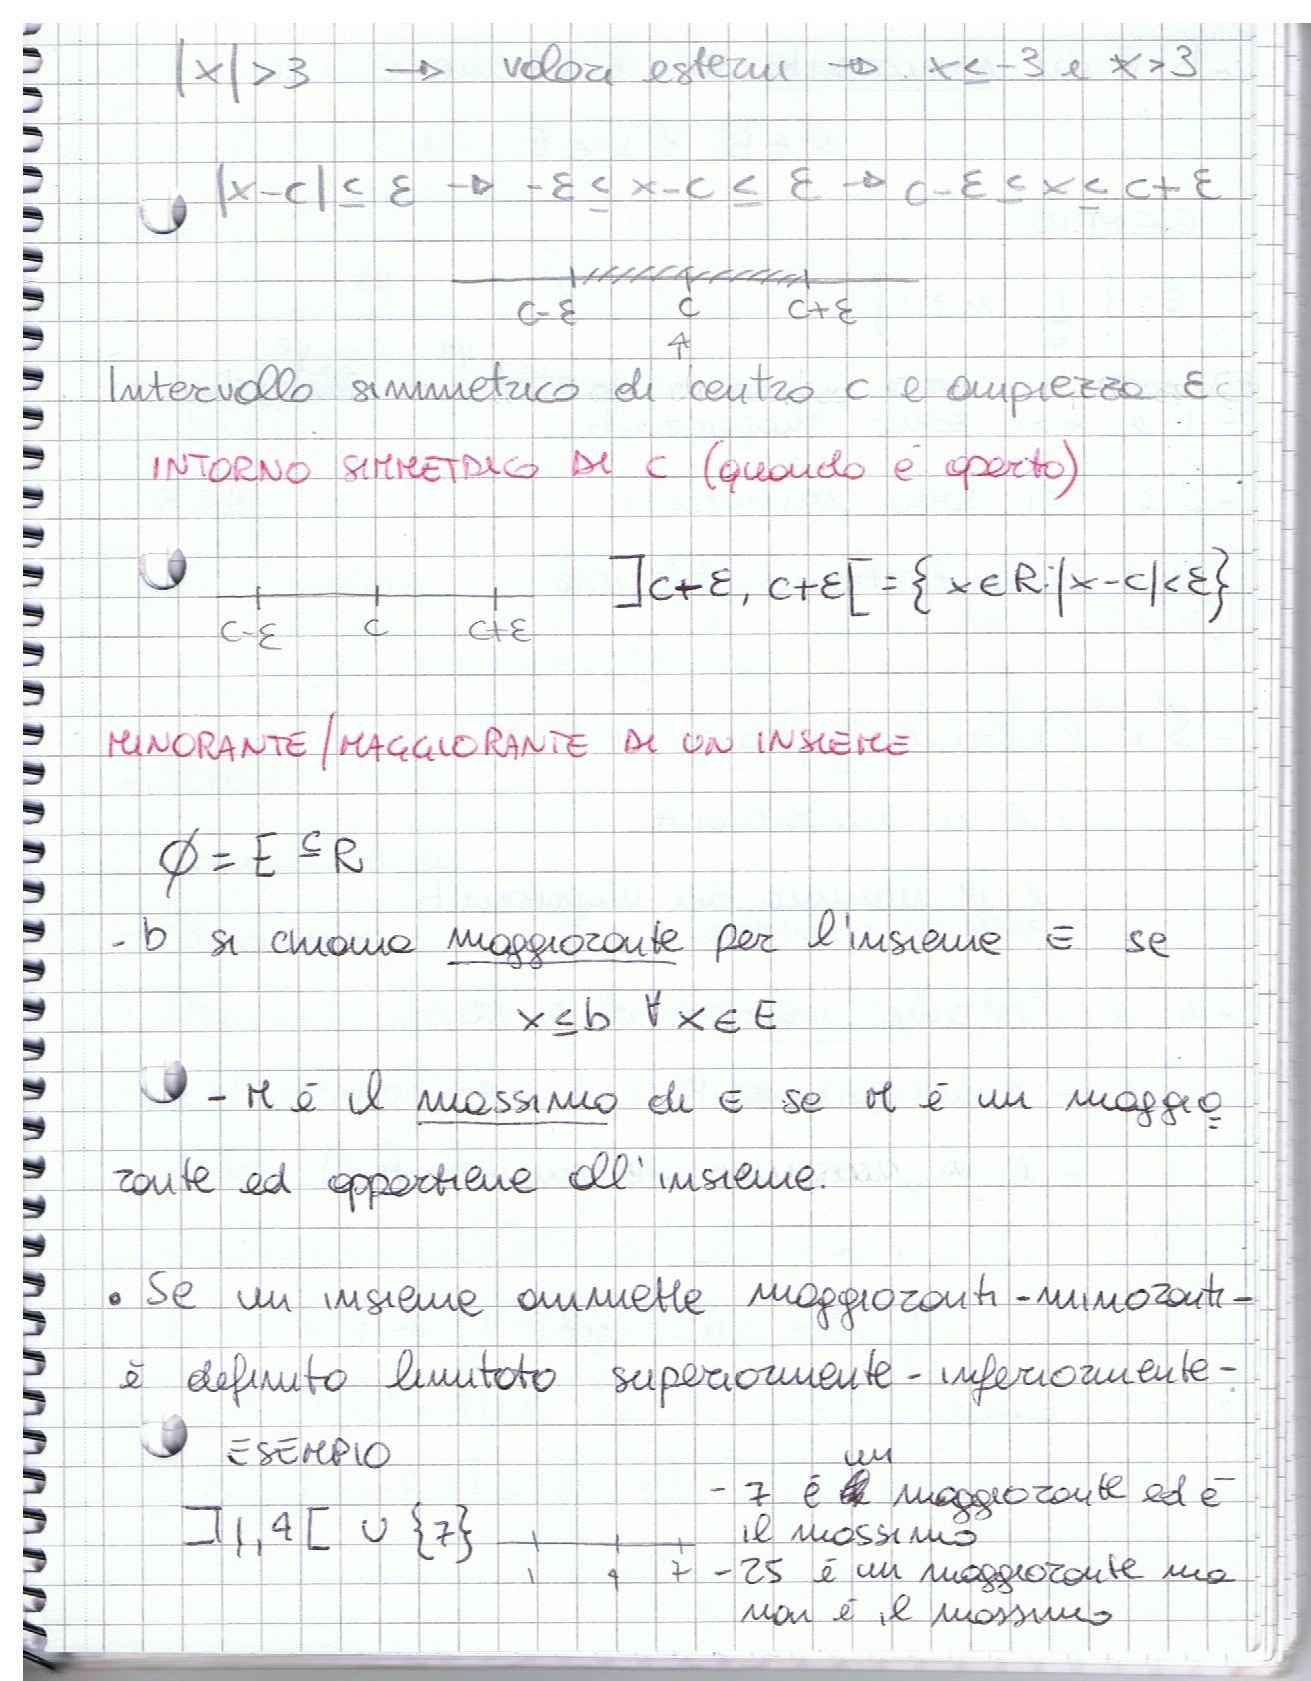 |x|>3 → valori esterni → x≤-3 e x>3
|x-c|≤ε → -ε≤x-c≤ε → c-ε≤x≤c+ε
c-ε c c+ε
Intervallo simmetrico di centro c e ampiezza ε
INTORNO SIMMETRICO DI C (quando è aperto)
]c+ε, c+ε[ = {x∈R:|x-c|<ε}
c-ε c c+ε
MINORANTE/MAGGIORANTE DI UN INSIEME
∅=E⊆R
- b si chiama maggiorante per l'insieme E se
x≤b ∀x∈E
- M è il massimo di E se M è un maggio
rante ed appartiene all'insieme.
• Se un insieme ammette maggioranti-minoranti-
è definito limitato superiormente-inferiormente-
ESEMPIO
un
- 7 è maggiorante ed è
]1,4[ ∪ {7} il massimo
1 4 7 - 25 è un maggiorante ma
non è il massimo